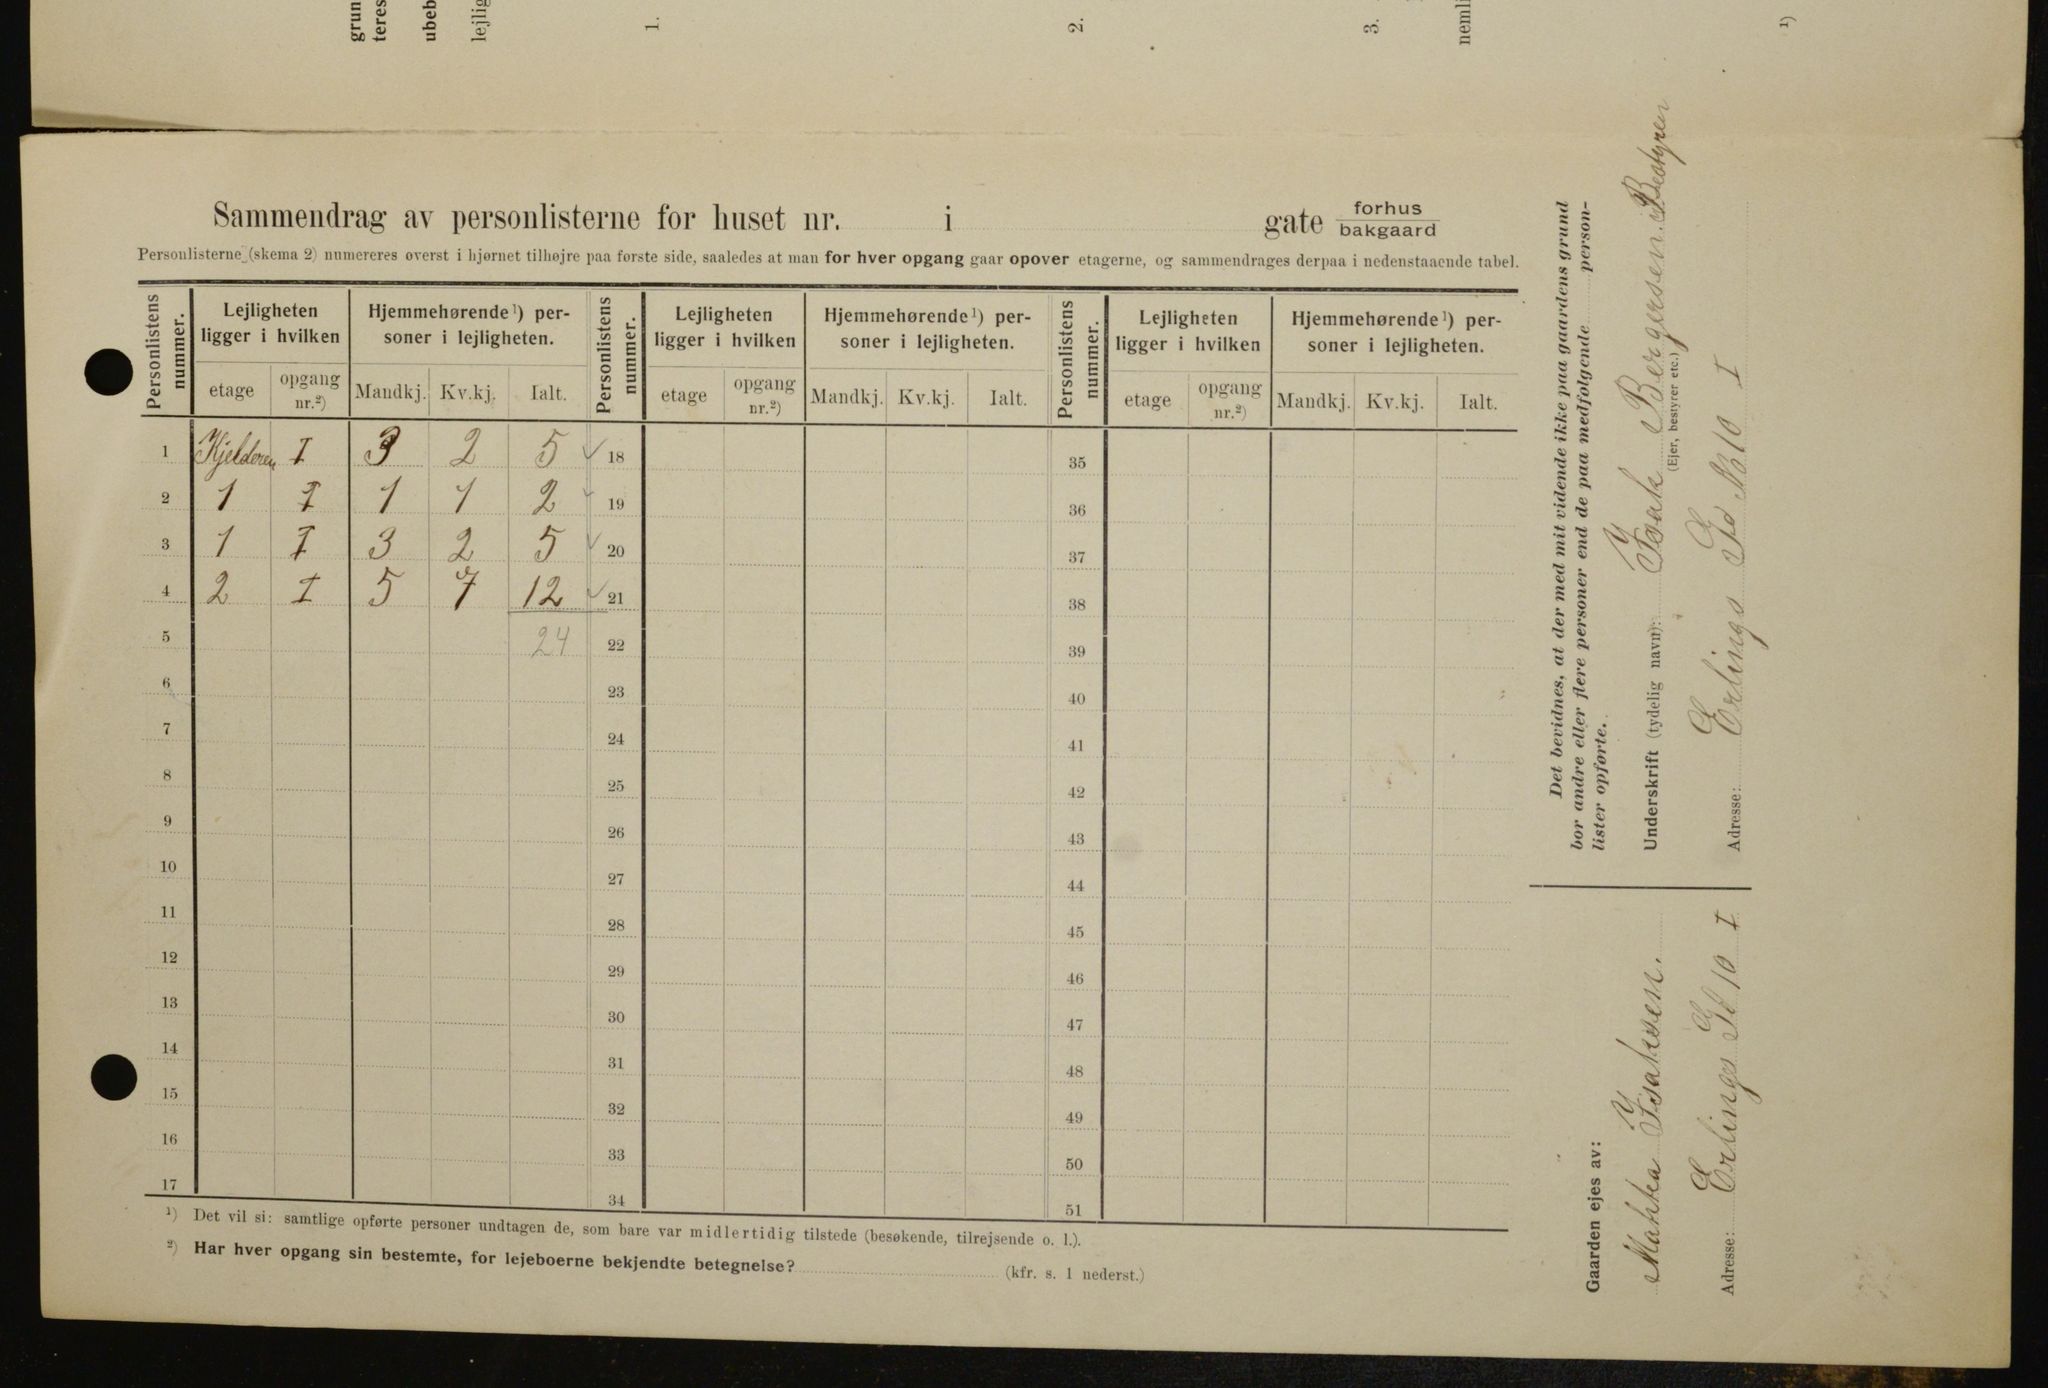 grun
teres
ubeb
lejlig
1.
2.
3.
nemli
¹)
Sammendrag av personlisterne for huset nr. i gate forhus
bakgaard
Personlisterne (skema 2) numereres øverst i hjørnet tilhøjre paa første side, saaledes at man for hver opgang gaar opover etagerne, og sammendrages derpaa i nedenstaaende tabel.
Personlistens nummer. Lejligheten ligger i hvilken Hjemmehørende¹) personer i lejligheten. Personlistens nummer. Lejligheten ligger i hvilken Hjemmehørende¹) personer i lejligheten. Personlistens nummer. Lejligheten ligger i hvilken Hjemmehørende¹) personer i lejligheten.
etage opgang nr.²) Mandkj. Kv.kj. Ialt. etage opgang nr.²) Mandkj. Kv.kj. Ialt. etage opgang nr.²) Mandkj. Kv.kj. Ialt.
1 Kjelderen I 3 2 5 ✓ 18 35
2 1 I 1 1 2 ✓ 19 36
3 1 I 3 2 5 ✓ 20 37
4 2 I 5 7 12 ✓ 21 38
5 24 22 39
6 23 40
7 24 41
8 25 42
9 26 43
10 27 44
11 28 45
12 29 46
13 30 47
14 31 48
15 32 49
16 33 50
17 34 51
¹) Det vil si: samtlige opførte personer undtagen de, som bare var midlertidig tilstede (besøkende, tilrejsende o. l.).
²) Har hver opgang sin bestemte, for lejeboerne bekjendte betegnelse? (kfr. s. 1 nederst.)
Det bevidnes, at der med mit vidende ikke paa gaardens grund
bor andre eller flere personer end de paa medfølgende person-
lister opførte.
Underskrift (tydelig navn): Isak Bergersen. Bestyrer
(Ejer, bestyrer etc.)
Adresse: Erlings Gd No 10 I
Gaarden ejes av:
Makka Isaksen.
Adresse: Erlings Gd 10 I